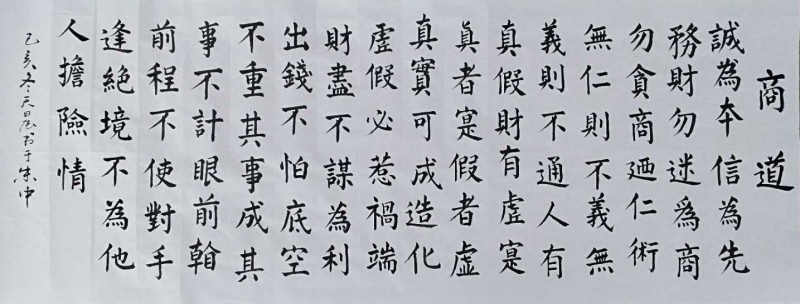 商道
誠為本信為先
務財勿迷為商
勿貪商廼仁術
無仁則不義無
義則不通人有
真假財有虛寔
真者寔假者虛
真實可成造化
虛假必惹禍端
財盡不謀為利
出錢不怕底空
不重其事成其
事不計眼前翰
前程不使對手
逢絕境不為他
人擔險情
己亥冬天星書于